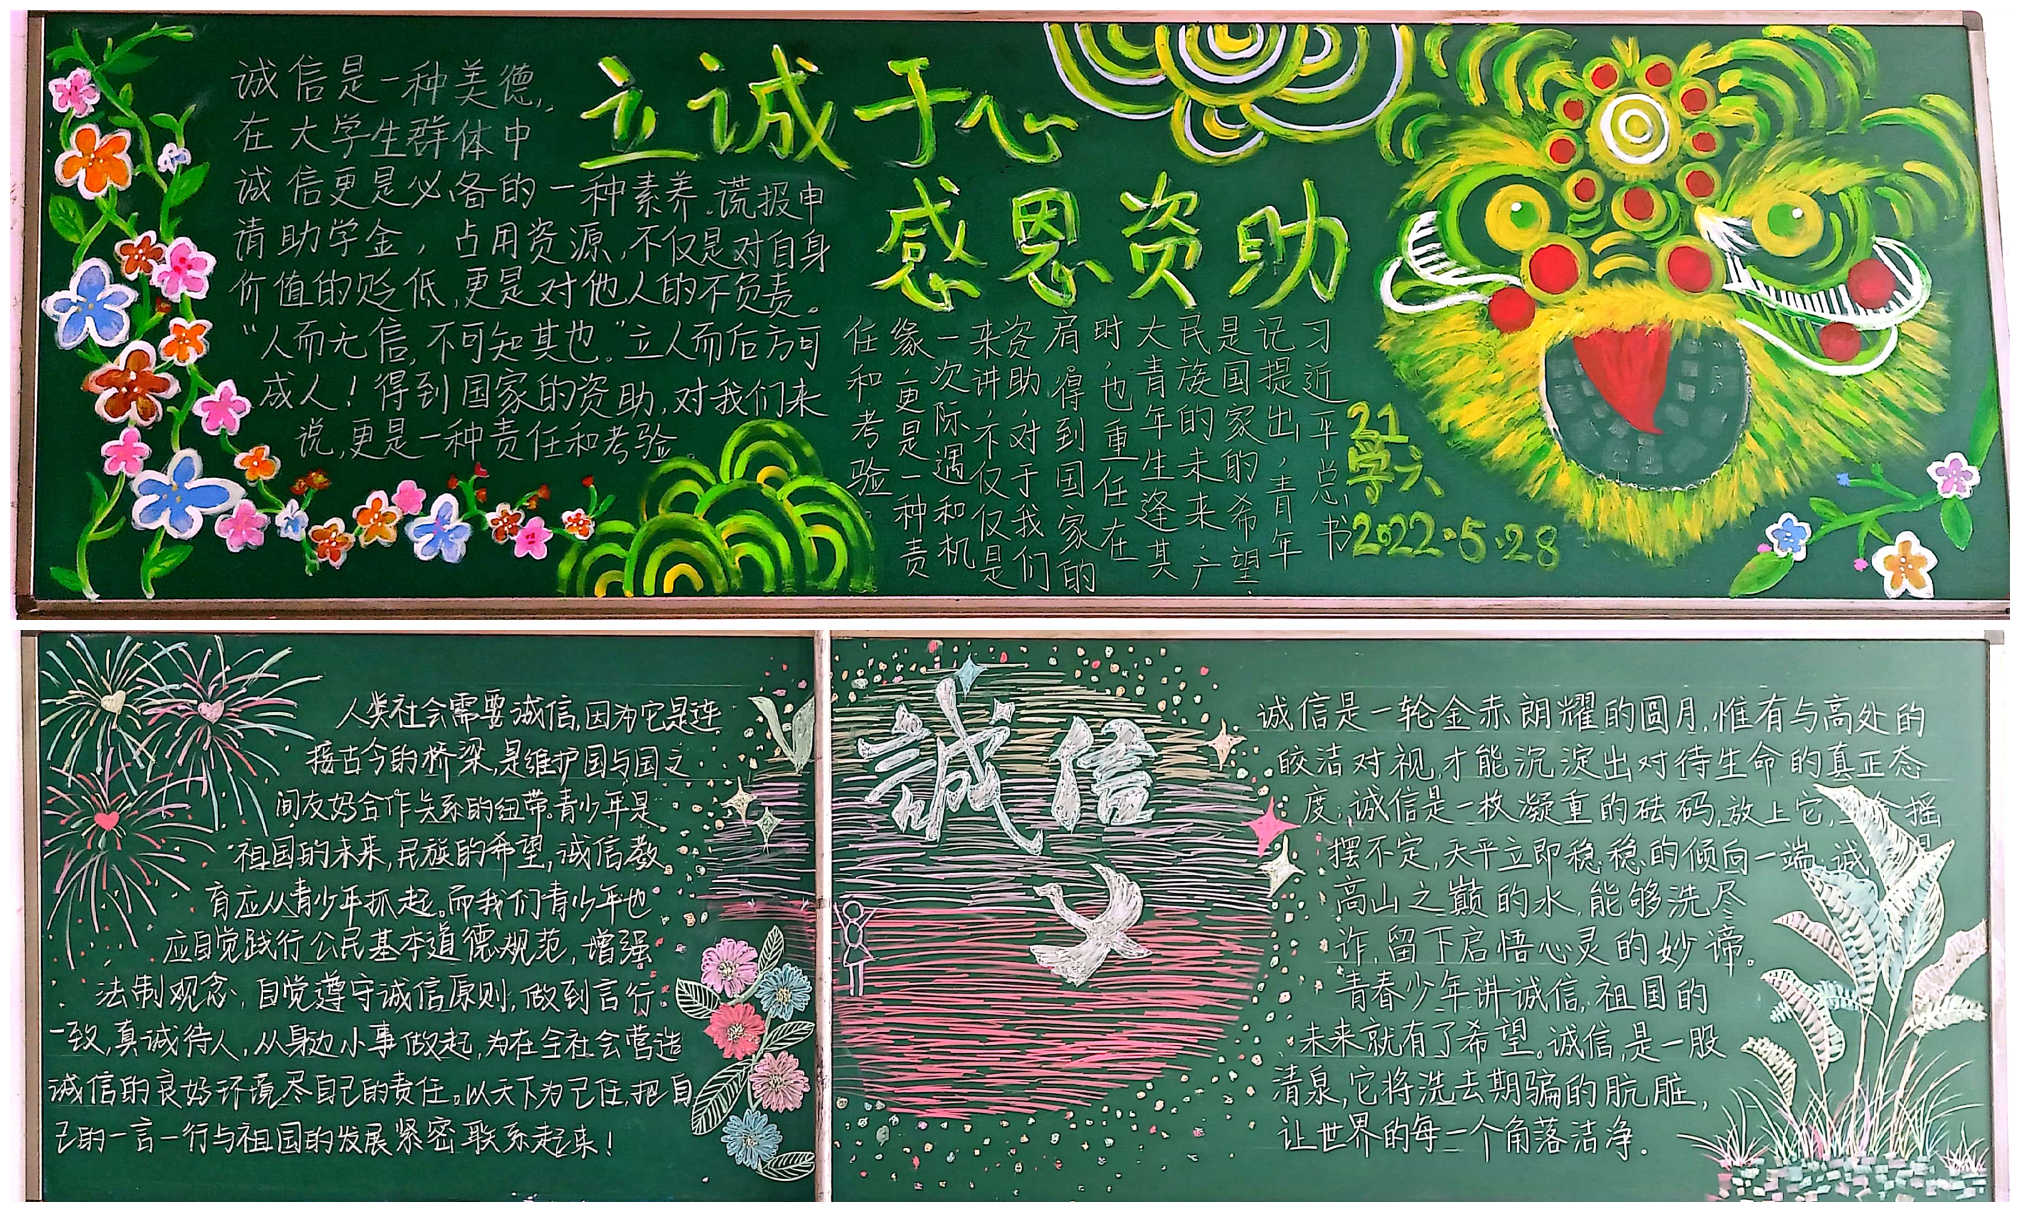 诚信是一种美德,
在大学生群体中
诚信更是必备的一种素养。谎报申
请助学金,占用资源,不仅是对自身
价值的贬低,更是对他人的不负责。
“人而无信,不可知其也。”立人而后方可
成人!得到国家的资助,对我们来
说,更是一种责任和考验。
立诚于心
感恩资助
习近平总书
记提出,青年
是国家的希望,
民族的未来,广
大青年生逢其
时,也重任在
肩,得到国家的
资助,对于我们
来讲,不仅仅是
一次际遇和机
缘,更是一种责
任和考验。
21
学六
2022.5.28
人类社会需要诚信,因为它是连
接古今的桥梁,是维护国与国之
间友好合作关系的纽带。青少年是
祖国的未来,民族的希望,诚信教
育应从青少年抓起。而我们青少年也
应自觉践行公民基本道德规范,增强
法制观念,自觉遵守诚信原则,做到言行
一致,真诚待人,从身边小事做起,为在全社会营造
诚信的良好环境尽自己的责任。以天下为己任,把自
己的一言一行与祖国的发展紧密联系起来!
誠信
诚信是一轮金赤朗耀的圆月,惟有与高处的
皎洁对视,才能沉淀出对待生命的真正态
度;诚信是一枚凝重的砝码,放上它,摇
摆不定,天平立即稳稳的倾向一端,诚
高山之巅的水,能够洗尽
诈,留下启悟心灵的妙谛。
青春少年讲诚信,祖国的
未来就有了希望。诚信,是一股
清泉,它将洗去期骗的肮脏,
让世界的每一个角落洁净.